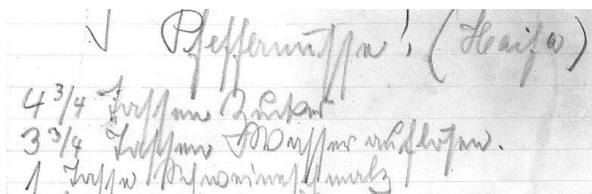 Pfeffernüsse! (Haifa)
4 3/4 Tassen Zucker
3 3/4 Tassen Wasser auflösen.
1 Tasse Schweineschmalz